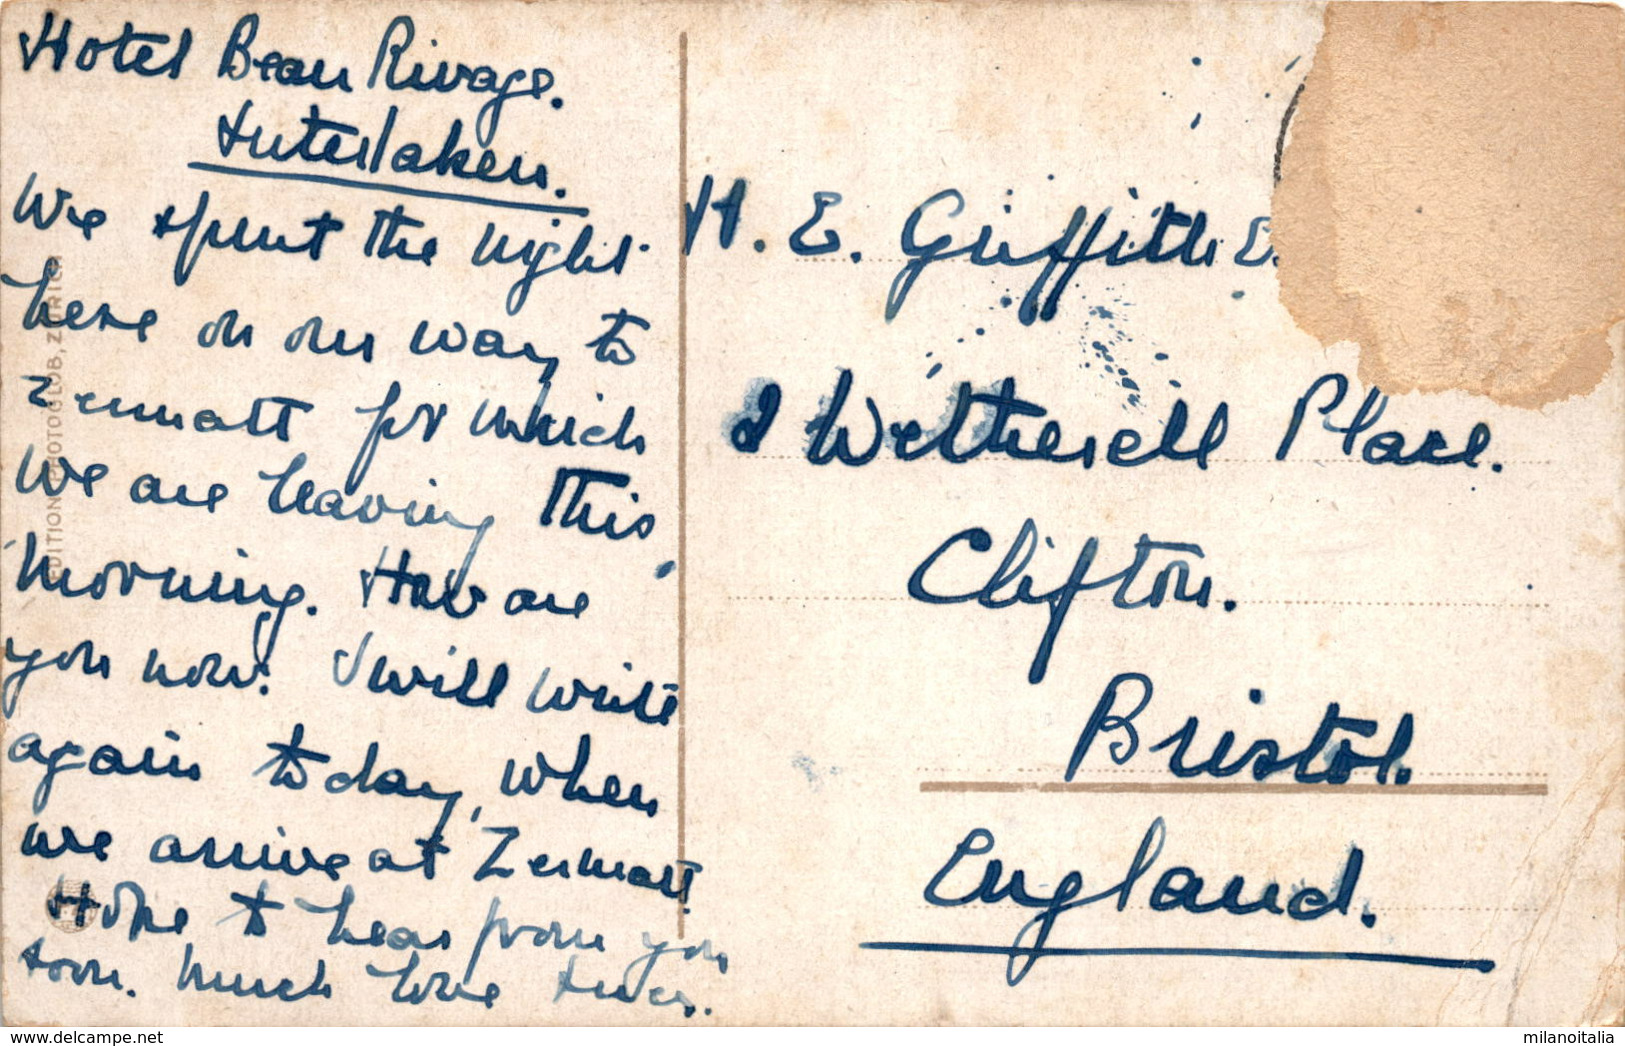 Hotel Beau Rivage.
Interlaken.
We spent the night
here on our way to
Zermatt for which
we are leaving this
morning. How are
you now. I will write
again today, when
we arrive at Zermatt.
Hope to hear from you
soon. Much love
H. E. Griffith E
2 Wetherell Place.
Clifton.
Bristol.
England.
EDITION PHOTOGLOB, ZÜRICH
delcampe.net
milanoitalia